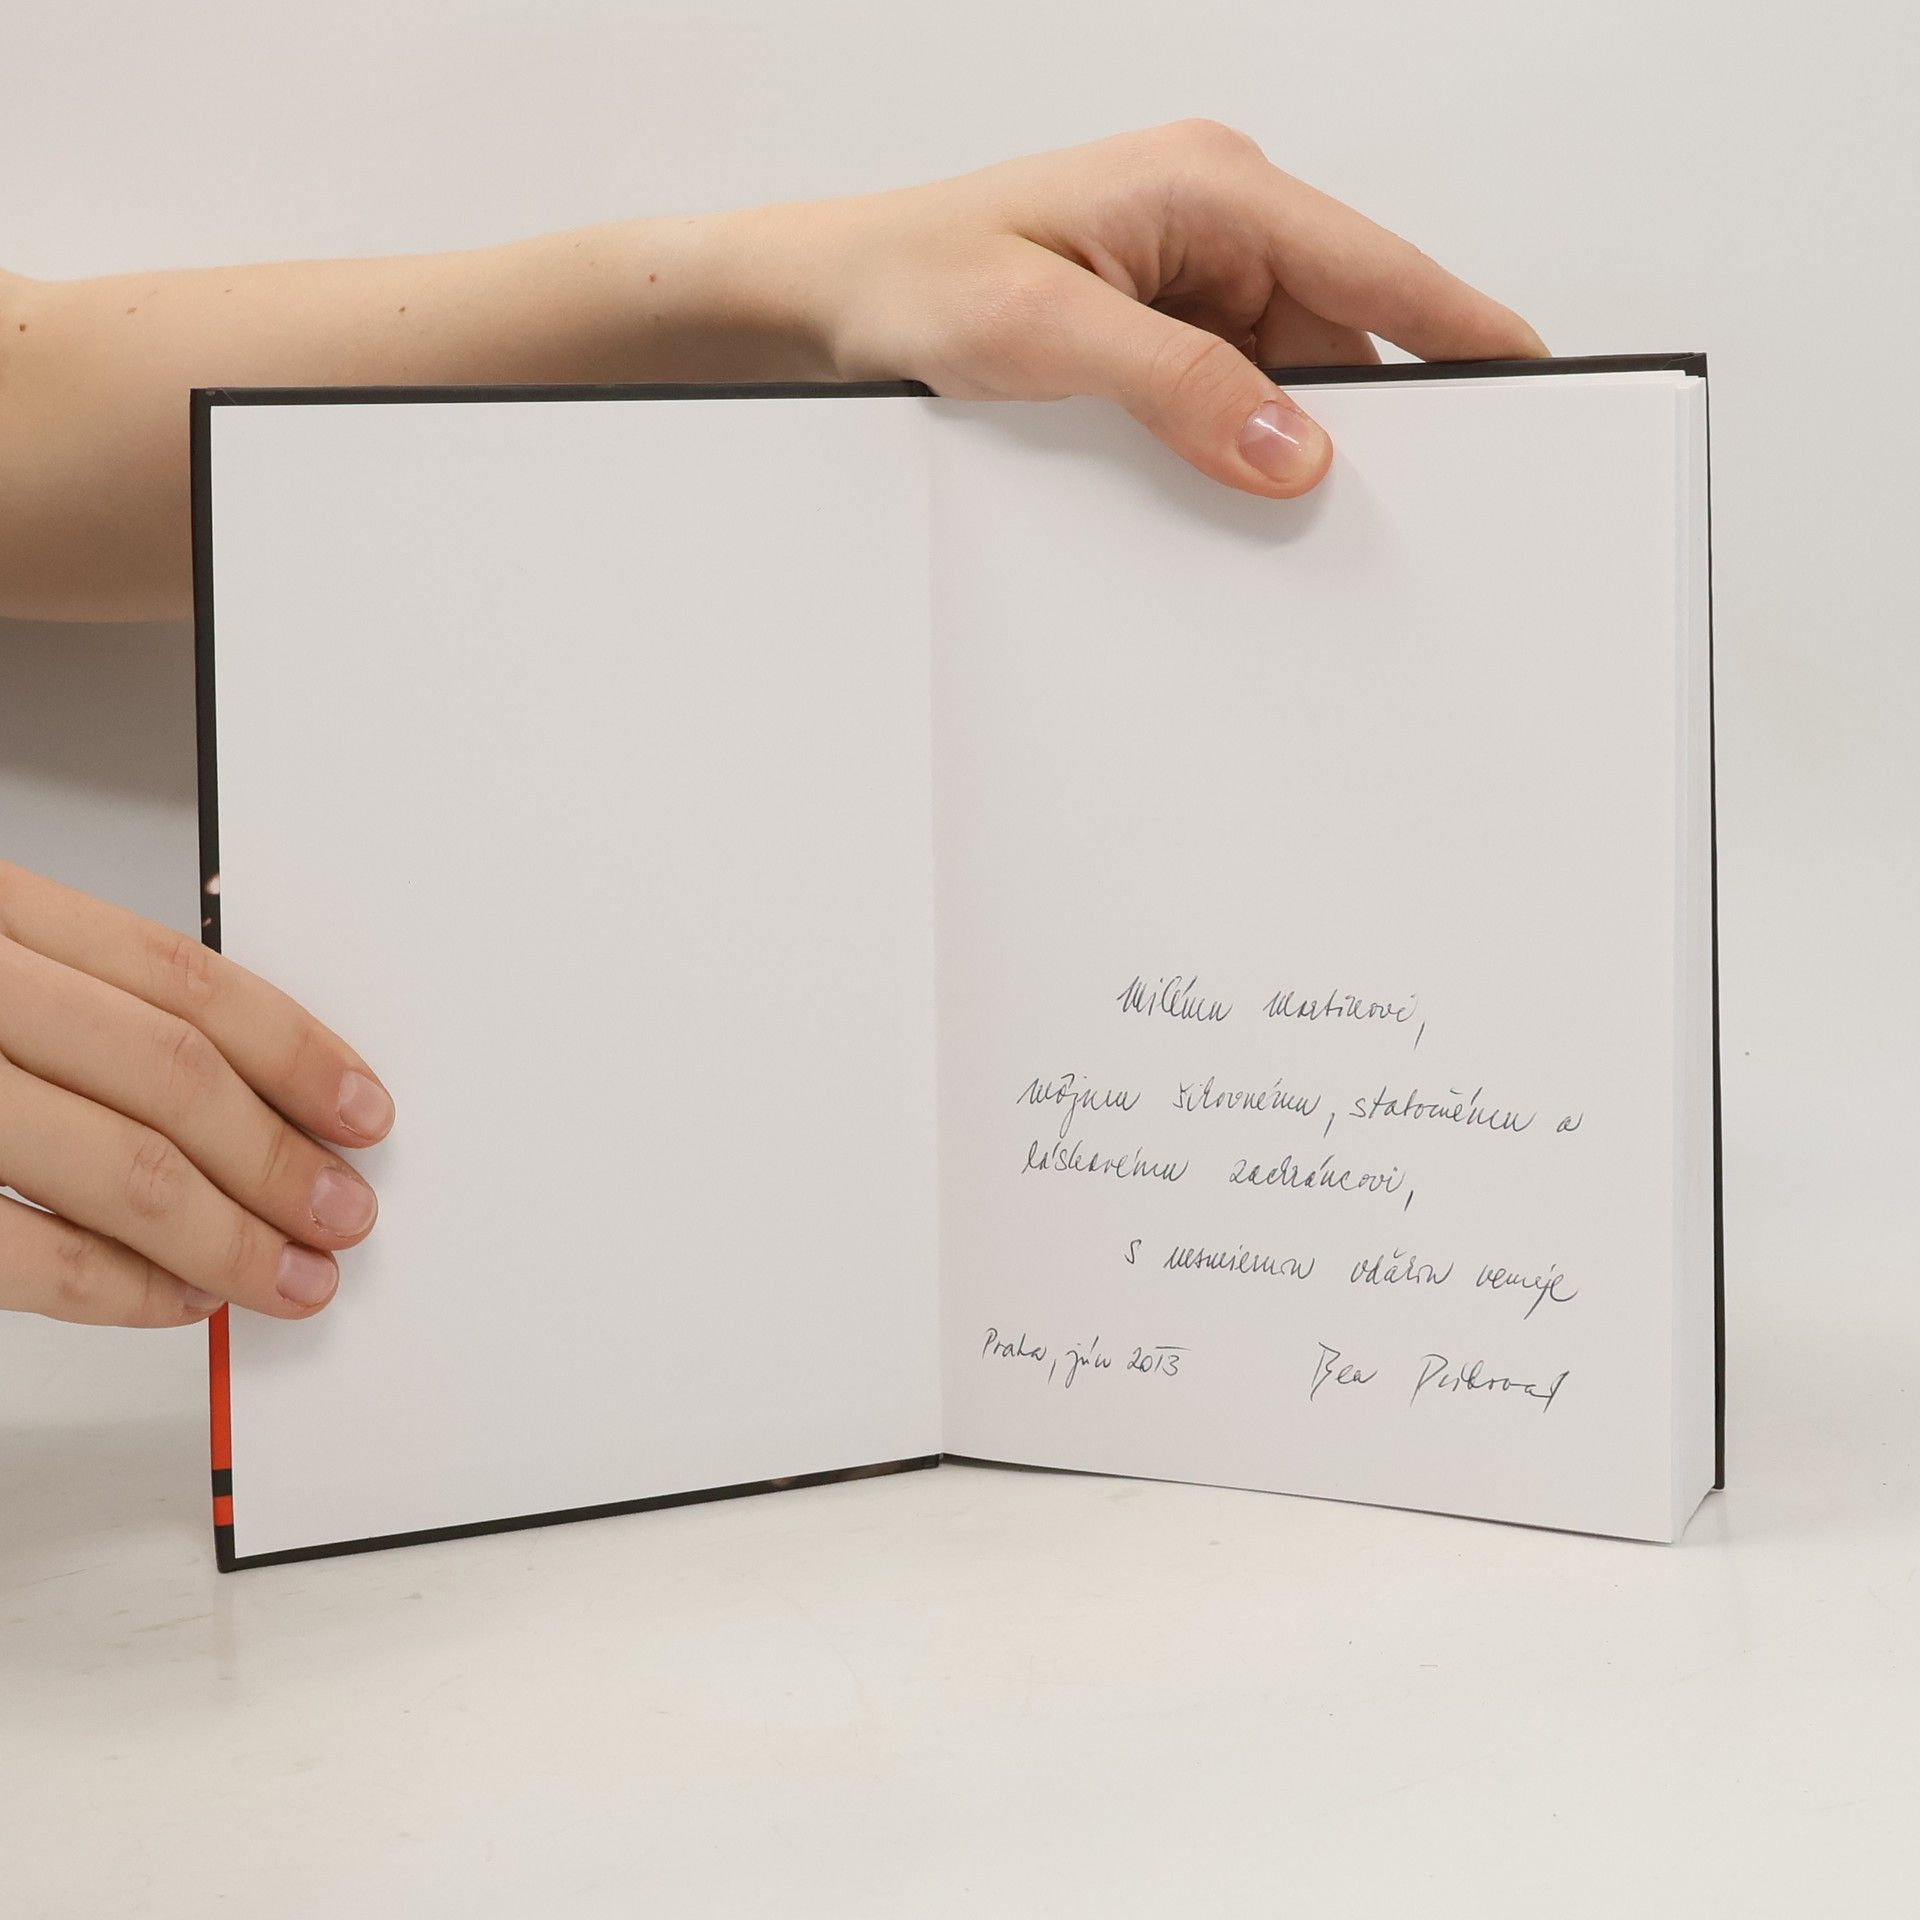 Milému Martinovi,
môjmu šikovnému, statočnému a
láskavému záchrancovi,
s nesmiernou vďakou venuje
Praha, jún 2013 Bea